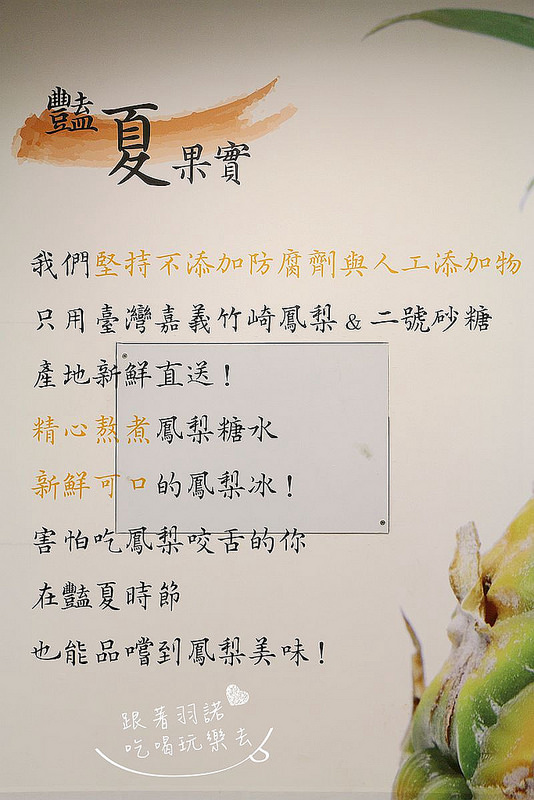 豔夏果實
我們堅持不添加防腐劑與人工添加物
只用臺灣嘉義竹崎鳳梨&二號砂糖
產地新鮮直送！
精心熬煮鳳梨糖水
新鮮可口的鳳梨冰！
害怕吃鳳梨咬舌的你
在豔夏時節
也能品嚐到鳳梨美味！
跟著羽諾
吃喝玩樂去